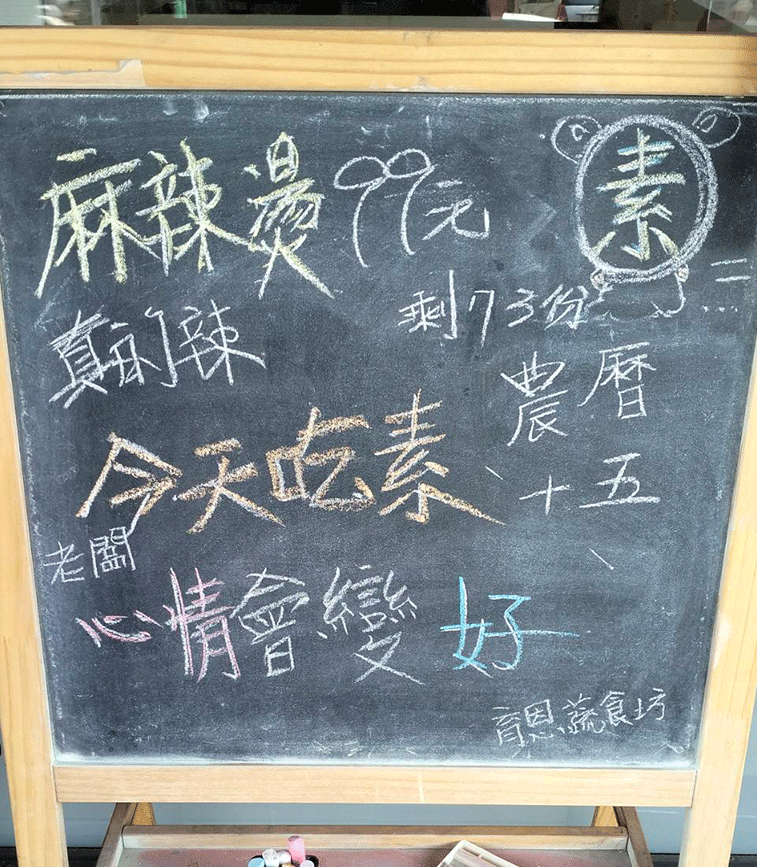 麻辣燙99元
素
真的辣
剩73份
農曆
十五
今天吃素
老闆
心情會變好
育恩蔬食坊